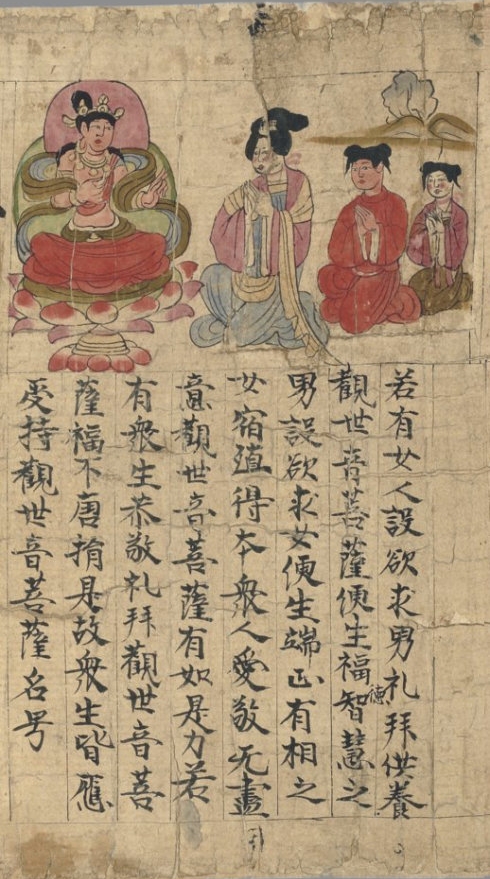 若有女人設欲求男礼拜供養
觀世音菩薩便生福德智慧之
男設欲求女便生端正有相之
女宿殖得本衆人愛敬无盡
意觀世音菩薩有如是力若
有衆生恭敬礼拜觀世音菩
薩福不唐捐是故衆生皆應
受持觀世音菩薩名号